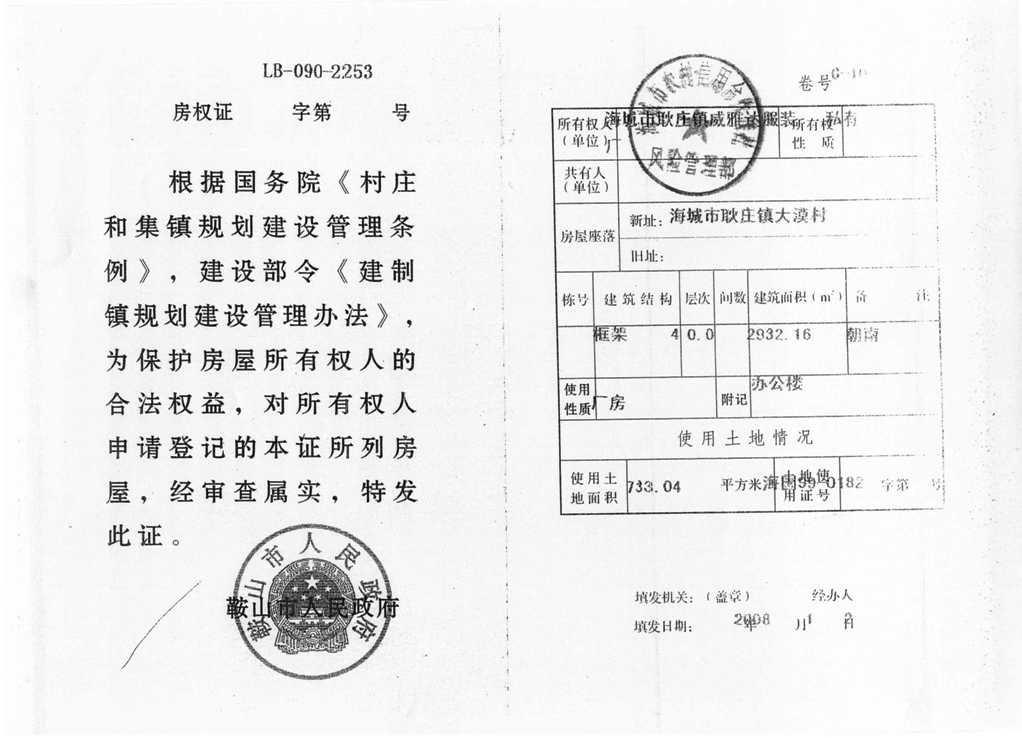 LB-090-2253
房权证 字第 号
根据国务院《村庄
和集镇规划建设管理条
例》，建设部令《建制
镇规划建设管理办法》，
为保护房屋所有权人的
合法权益，对所有权人
申请登记的本证所列房
屋，经审查属实，特发
此证。
鞍山市人民政府
鞍山市人民政府
卷号
所有权人
（单位）
海城市耿庄镇威雅达服装
厂
所有权
性 质
私有
风险管理部
共有人
（单位）
房屋座落
新址：海城市耿庄镇大漠村
旧址：
栋号 建筑结构 层次 间数 建筑面积（m²） 备 注
框架 4 0.0 2932.16 朝南
使用
性质
厂房
附记
办公楼
使用土地情况
使用土
地面积
733.04 平方米
土地使
用证号
海国99-0182 字第 号
填发机关：（盖章） 经办人
填发日期： 2008年 1月 2日